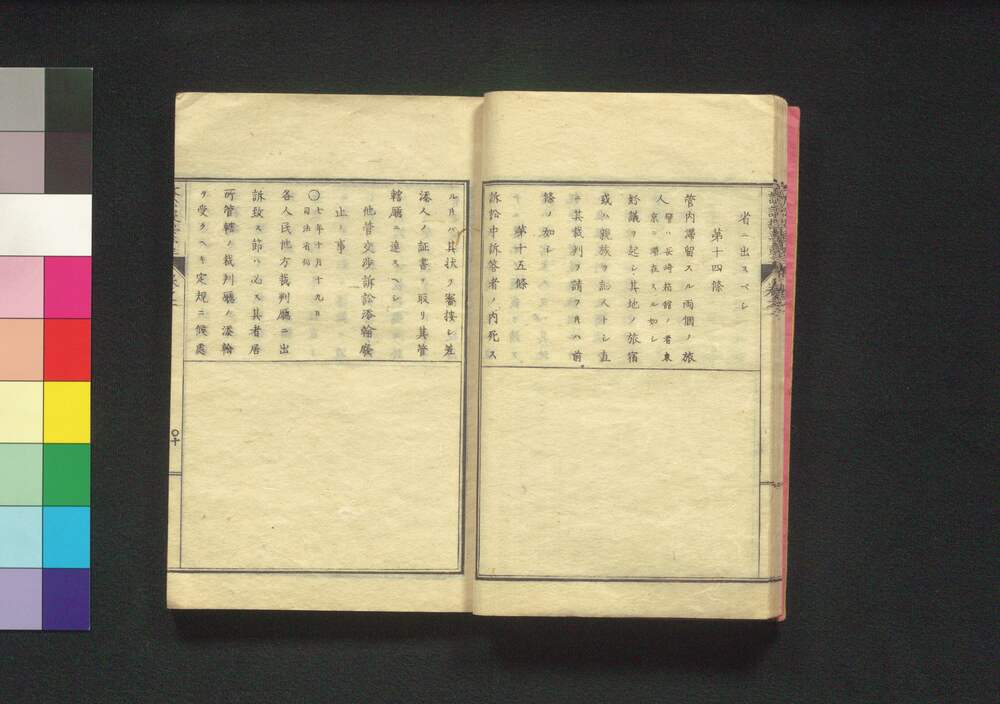 省ニ出スベシ
第十四條
管内滯留スル両個ノ旅
人譬ハ長崎箱館ノ者東京ニ滯在スル如シ
爭議ヲ起シ其地ノ旅宿
或ハ親族ヲ証人トシ直
ニ其裁判ヲ請フ片ハ前
條ノ如シ
第十五條
訴訟中訴答者ノ内死ス
ル片ハ其状ヲ審按シ差
添人ノ証書ヲ取リ其管
轄廳ニ達スヘシ
他管交渉訴訟添翰廢
止ノ事
○七年十月十九日司法省布
各人民他方裁判廳ニ出
訴致ス節ハ必ス其者居
所管轄ノ裁判廳ノ添翰
ヲ受クヘキ定規ニ候處
十